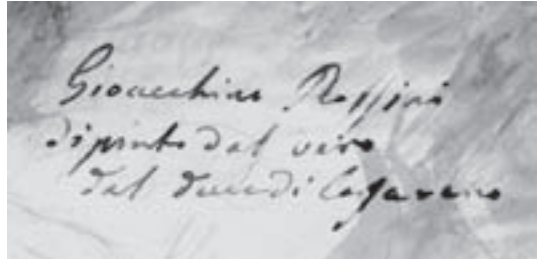 Gioacchino Rossini
dipinto dal vero
dal duca di Casarano